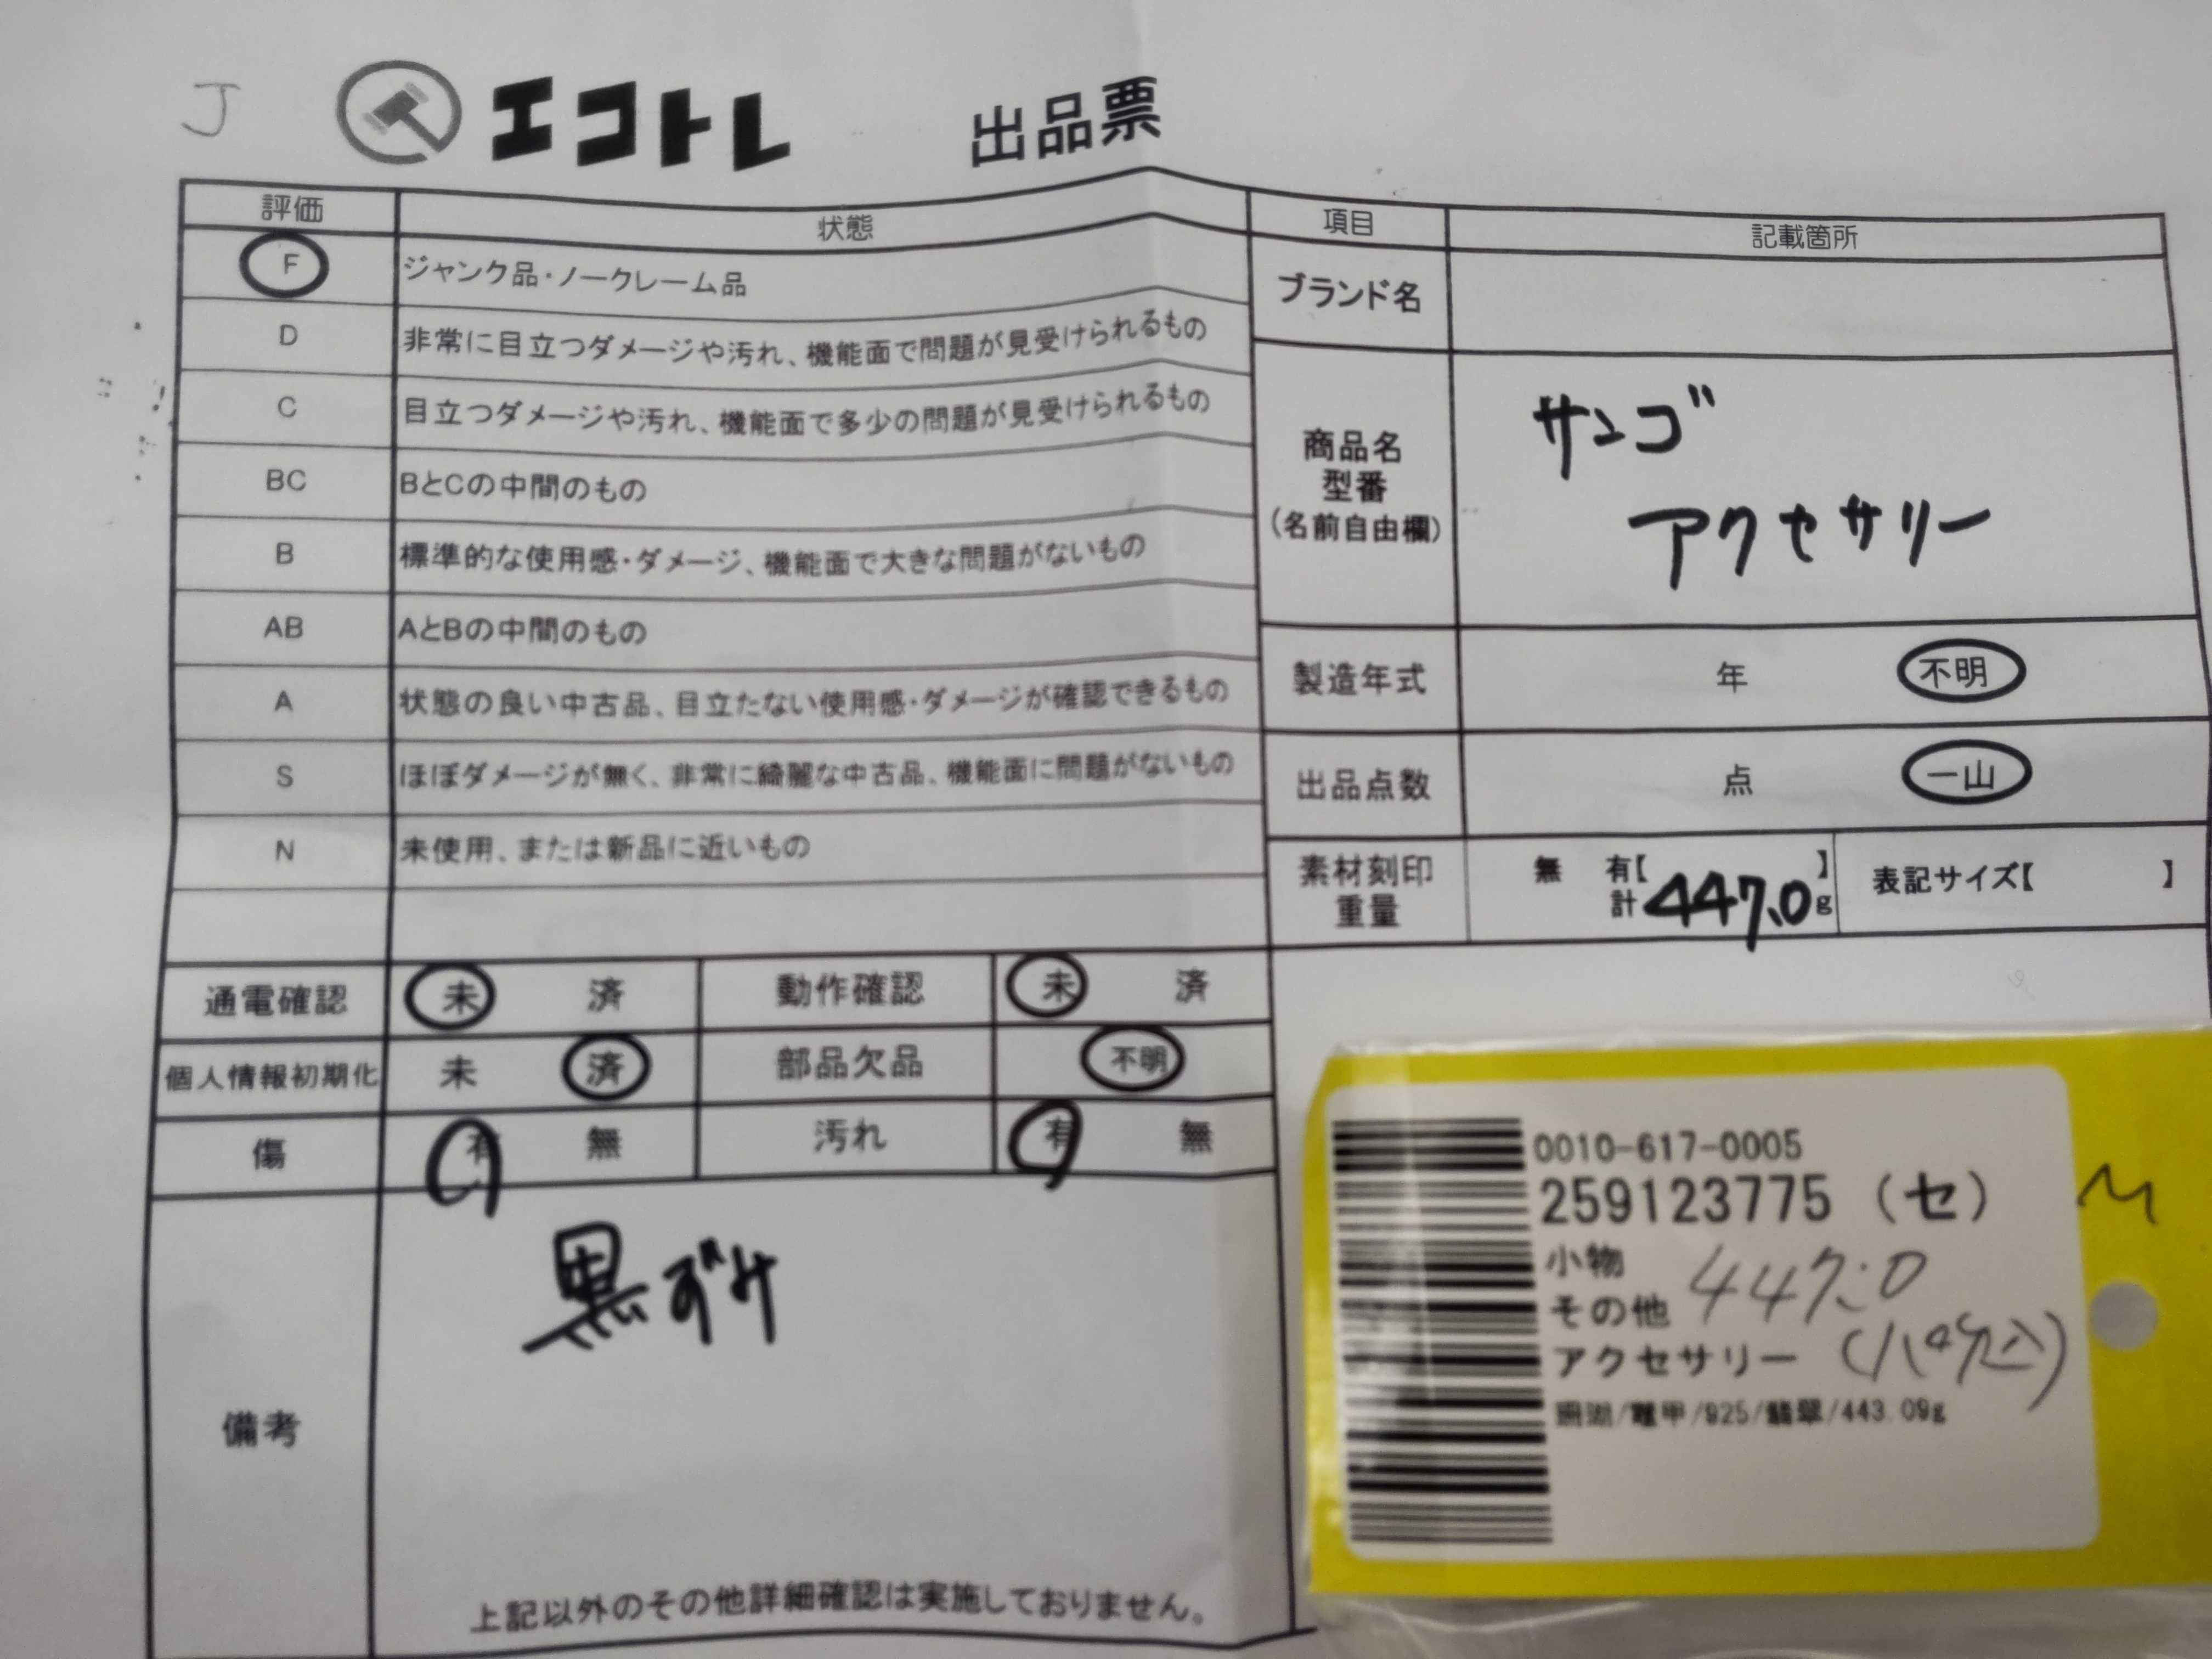 J
エコトレ 出品票
評価 状態
F ジャンク品・ノークレーム品
D 非常に目立つダメージや汚れ、機能面で問題が見受けられるもの
C 目立つダメージや汚れ、機能面で多少の問題が見受けられるもの
BC BとCの中間のもの
B 標準的な使用感・ダメージ、機能面で大きな問題がないもの
AB AとBの中間のもの
A 状態の良い中古品、目立たない使用感・ダメージが確認できるもの
S ほぼダメージが無く、非常に綺麗な中古品、機能面に問題がないもの
N 未使用、または新品に近いもの
通電確認 未 済 動作確認 未 済
個人情報初期化 未 済 部品欠品 不明
傷 有 無 汚れ 有 無
備考
黒ずみ
上記以外のその他詳細確認は実施しておりません。
項目 記載箇所
ブランド名
商品名
型番
(名前自由欄)
サンゴ
アクセサリー
製造年式 年 不明
出品点数 点 一山
素材刻印
重量
無 有【 】
計 447.0 g
表記サイズ【 】
0010-617-0005
259123775 (セ)
小物
その他 447.0
アクセサリー
珊瑚/鼈甲/925/翡翠/443.09g
M